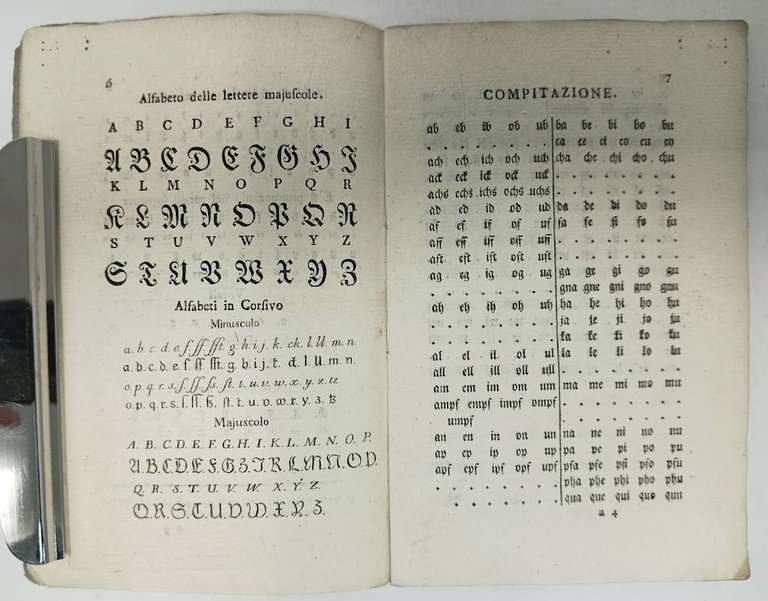 6
Alfabeto delle lettere majuſcole.
A B C D E F G H I
𝔄 𝔅 ℭ 𝔇 𝔈 𝔉 𝔊 ℌ ℑ
K L M N O P Q R
𝔎 𝔏 𝔐 𝔑 𝔒 𝔓 𝔔 ℜ
S T U V W X Y Z
𝔖 𝔗 𝔘 𝔙 𝔚 𝔛 𝔜 ℨ
Alfabeti in Corſivo
Minuscolo
a. b. c. d. e. f. ff. fft. g. h. i. j. k. ck. l. ll. m. n.
a. b. c. d. e. f. ff. fft. g. h. i. j. k. ck. l. ll. m. n.
o. p. q. r. s. ſ. ſſ. ſs. ſt. t. u. v. w. x. y. z. tz
o. p. q. r. s. ſ. ſſ. ß. ſt. t. u. v. w. x. y. z. tz
Majuscolo
A. B. C. D. E. F. G. H. I. K. L. M. N. O. P.
A. B. C. D. E. F. G. H. I. K. L. M. N. O. P.
Q. R. S. T. U. V. W. X. Y. Z.
Q. R. S. T. U. V. W. X. Y. Z.
7
COMPITAZIONE.
ab eb ib ob ub ba be bi bo bu
. . . . . ca ce ci co cu
ach ech ich och uch cha che chi cho chu
ack eck ick ock uck . . . . .
achs echs ichs ochs uchs . . . . .
ad ed id od ud da de di do du
af ef if of uf fa fe fi fo fu
aff eff iff off uff . . . . .
aft eft ift oft uft . . . . .
ag eg ig og ug ga ge gi go gu
. . . . . gna gne gni gno gnu
ah eh ih oh uh ha he hi ho hu
. . . . . ja je ji jo ju
. . . . . ka ke ki ko ku
al el il ol ul la le li lo lu
all ell ill oll ull . . . . .
am em im om um ma me mi mo mu
ampf empf impf ompf . . . . .
umpf
an en in on un na ne ni no nu
ap ep ip op up pa pe pi po pu
apf epf ipf opf upf pfa pfe pfi pfo pfu
. . . . . pha phe phi pho phu
. . . . . qua que qui quo quu
a 4